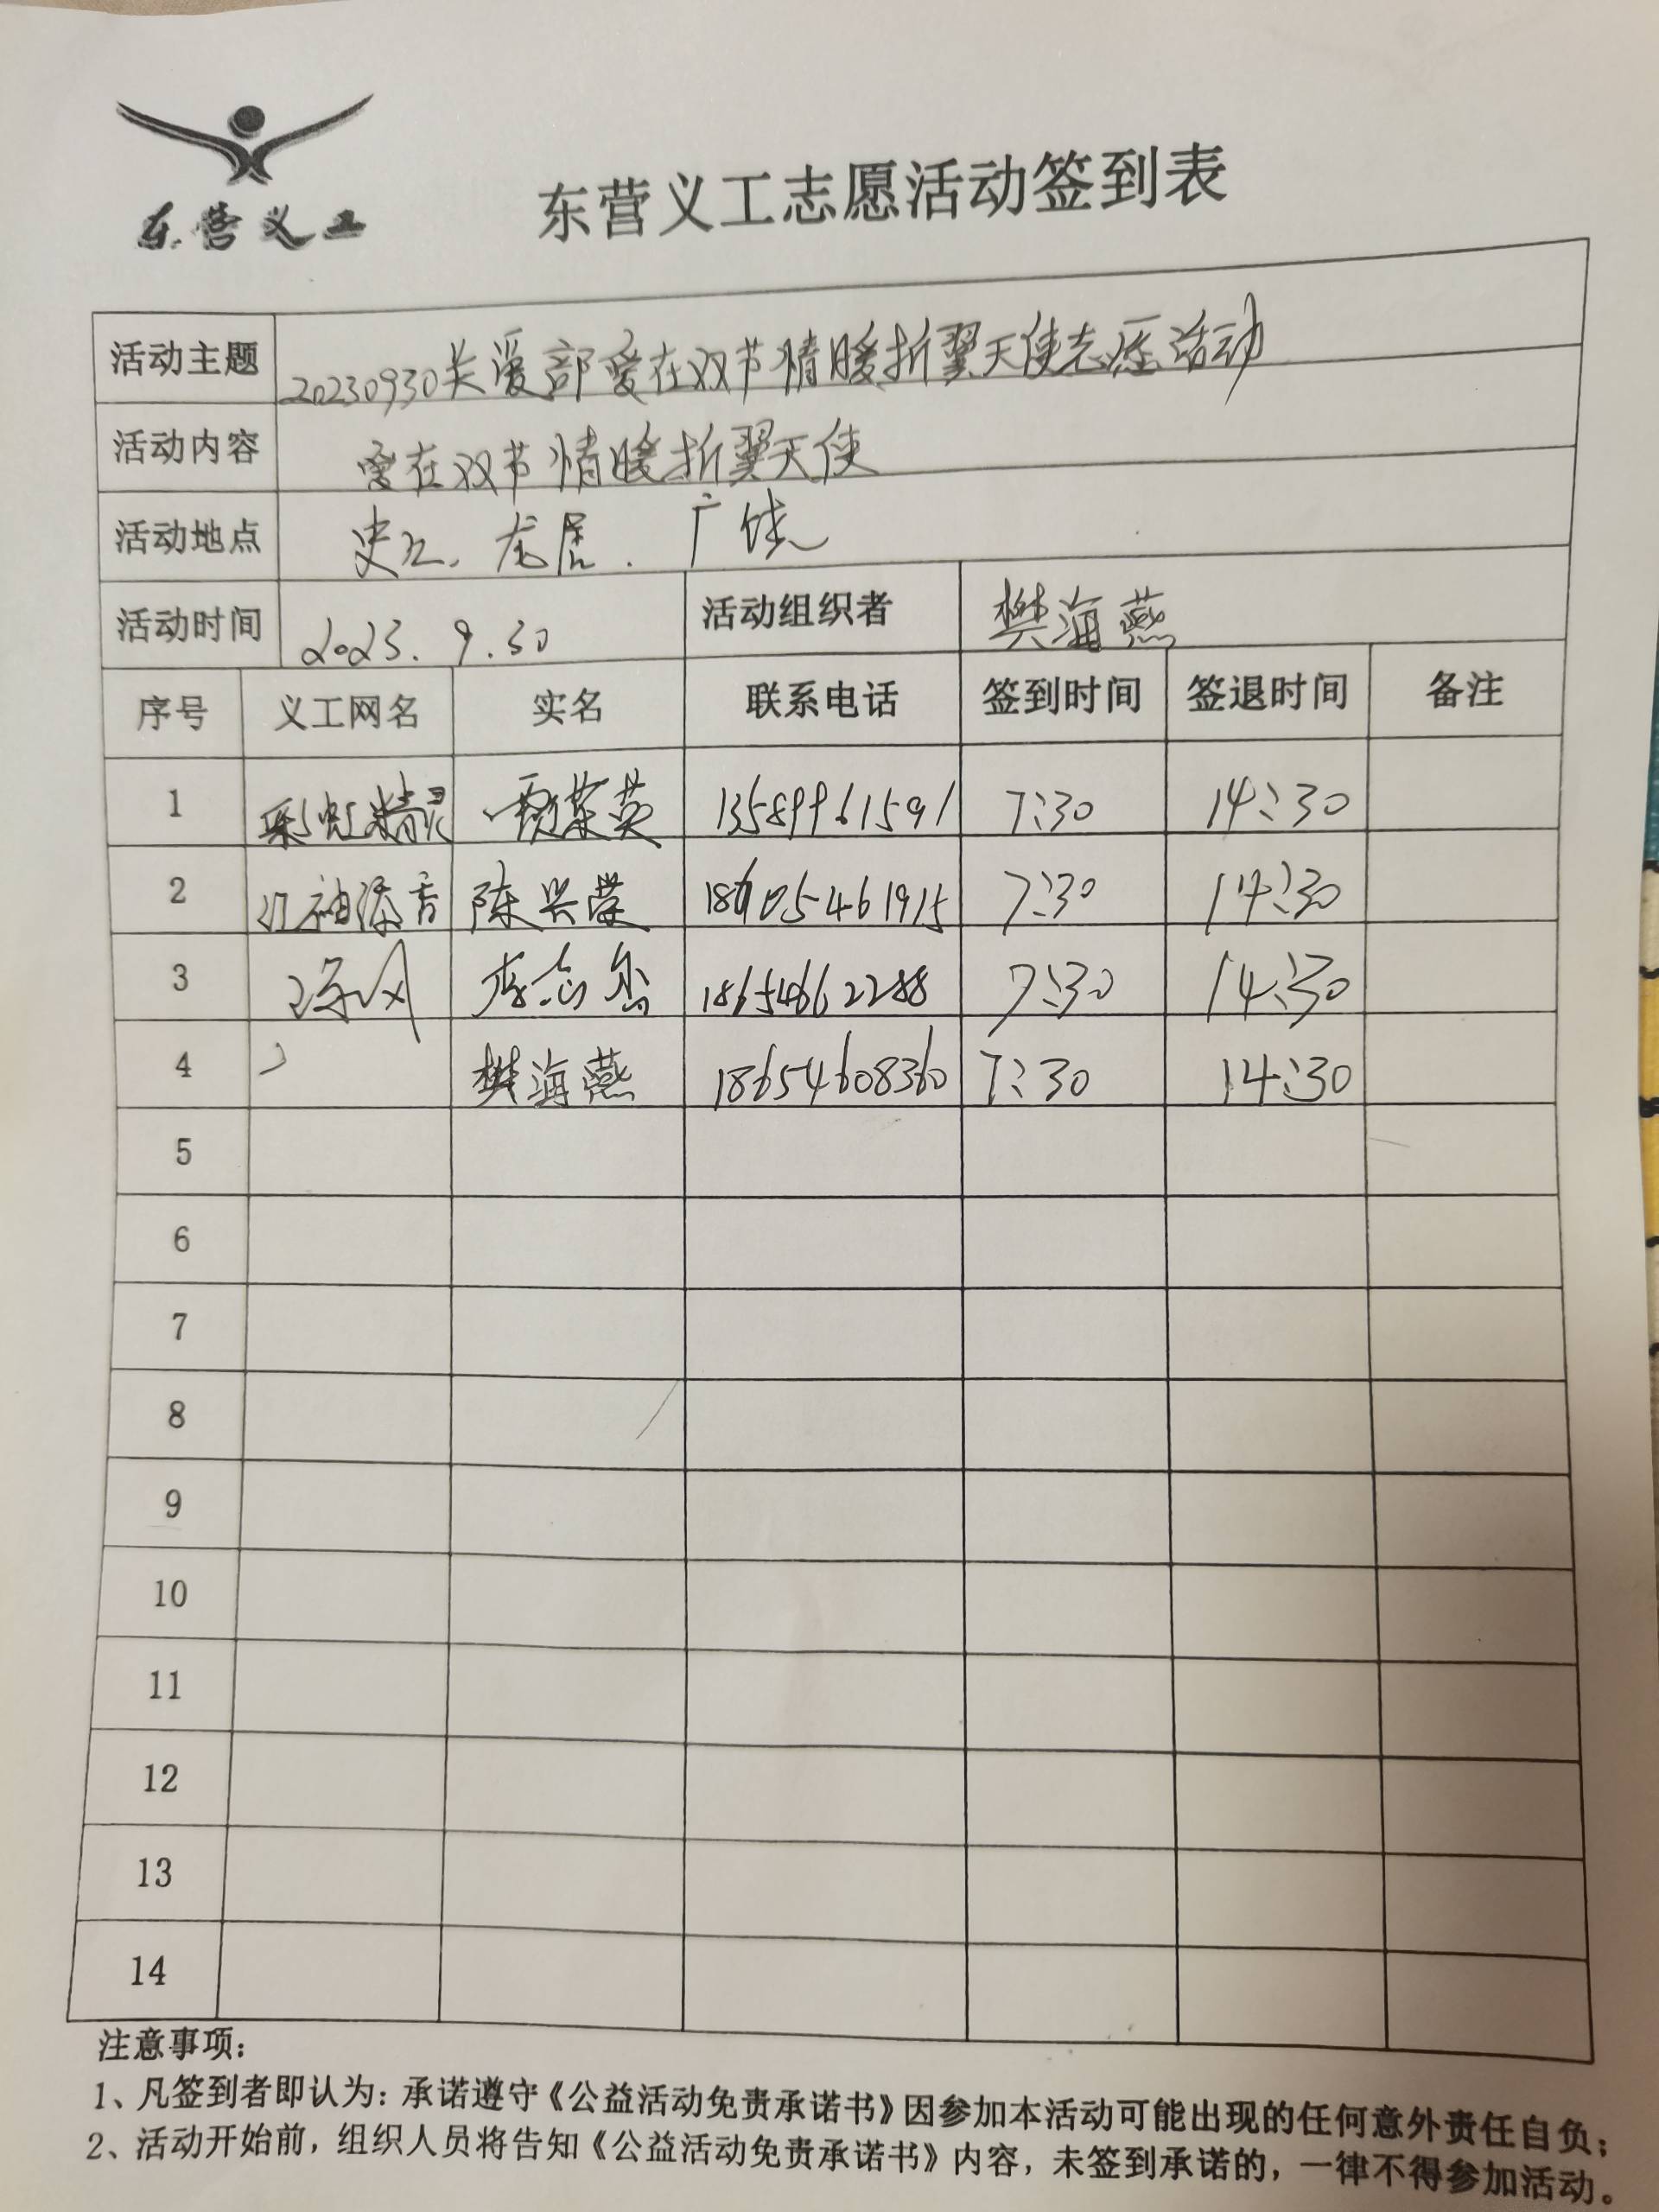 东营义工
东营义工志愿活动签到表
活动主题 20230930关爱部爱在双节情暖折翼天使志愿活动
活动内容 爱在双节情暖折翼天使
活动地点 史口、龙居、广饶
活动时间 2023.9.30 活动组织者 樊海燕
序号 义工网名 实名 联系电话 签到时间 签退时间 备注
1 彩虹精灵 贾荣英 13589961591 7:30 14:30
2 红袖添香 陈兴荣 7:30 14:30
3 18654662288 7:30 14:30
4 樊海燕 18654608360 7:30 14:30
5
6
7
8
9
10
11
12
13
14
注意事项：
1、凡签到者即认为：承诺遵守《公益活动免责承诺书》因参加本活动可能出现的任何意外责任自负；
2、活动开始前，组织人员将告知《公益活动免责承诺书》内容，未签到承诺的，一律不得参加活动。